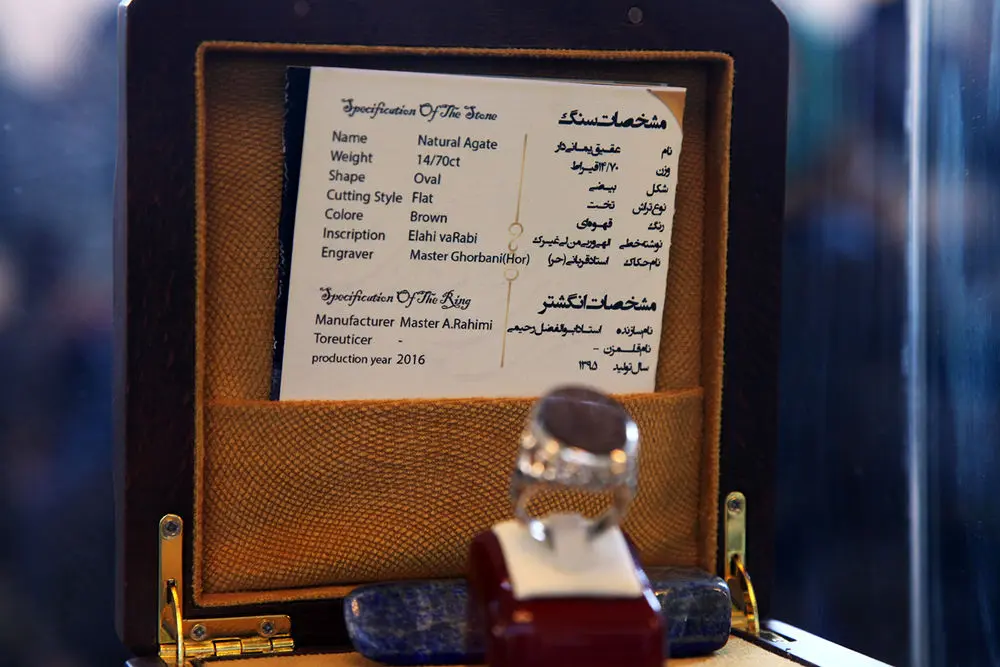 Specification Of The Stone
Name Natural Agate
Weight 14/70ct
Shape Oval
Cutting Style Flat
Colore Brown
Inscription Elahi vaRabi
Engraver Master Ghorbani(Hor)
Specification Of The Ring
Manufacturer Master A.Rahimi
Toreuticer -
production year 2016
مشخصات سنگ
نام عقیق یمانی دار
وزن ۱۴/۷۰ قیراط
شکل بیضی
نوع تراش تخت
رنگ قهوه‌ای
نوشته خطی الهی و ربی من لی غیرک
نام حکاک استاد قربانی (حر)
مشخصات انگشتر
نام سازنده استاد ابوالفضل رحیمی
نام قلمزن -
سال تولید ۱۳۹۵